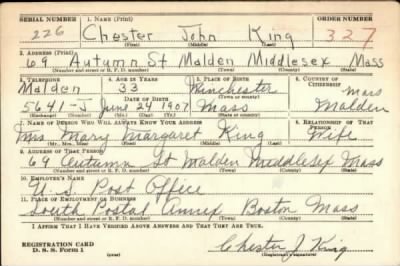 SERIAL NUMBER 1. NAME (Print) ORDER NUMBER
226 Chester John King 327
(First) (Middle) (Last)
2. ADDRESS (Print)
69 Autumn St Malden Middlesex Mass
(Number and street or R. F. D. number) (Town) (County) (State)
3. TELEPHONE 4. AGE IN YEARS 5. PLACE OF BIRTH 6. COUNTRY OF CITIZENSHIP
Malden 33 Winchester Mass
DATE OF BIRTH (Town or county)
5641-J June 24 1907 Mass Malden
(Exchange) (Number) (Mo.) (Day) (Yr.) (State or country)
7. NAME OF PERSON WHO WILL ALWAYS KNOW YOUR ADDRESS 8. RELATIONSHIP OF THAT PERSON
Mrs Mary Margaret King Wife
(Mr., Mrs., Miss) (First) (Middle) (Last)
9. ADDRESS OF THAT PERSON
69 Autumn St Malden Middlesex Mass
(Number and street or R. F. D. number) (Town) (County) (State)
10. EMPLOYER'S NAME
U.S. Post Office
11. PLACE OF EMPLOYMENT OR BUSINESS
South Postal Annex Boston Mass
(Number and street or R. F. D. number) (Town) (County) (State)
I AFFIRM THAT I HAVE VERIFIED ABOVE ANSWERS AND THAT THEY ARE TRUE.
REGISTRATION CARD
D. S. S. Form 1 Chester J King
(Registrant's signature)